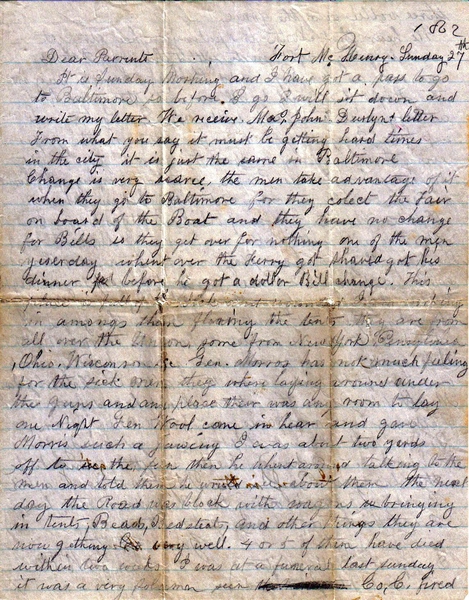 1862
Fort McHenry. Sunday 27th
Dear Parents
It is Sunday Morning and I have got a pass to go
to Baltimore before I go I will sit down and
write my letter I receive John Devlyns letter
From what you say it must be getting hard times
in the city it is just the same in Baltimore
Change is very scarce, the men take advantage of it
when they go to Baltimore for they colect the Fair
on board of the Boat and they have no change
for Bills so they get over for nothing one of the men
yesterday whent over the Ferry got shaved got his
dinner before he got a dollar Bill change. This
in amongs them flooring the tents they are from
all over the Union, some from New York Pensylvania
, Ohio, Wisconson Gen. Morros has not much feeling
for the sick ones they where laying around under
the guns and any place their was any room to lay
one Night Gen Wool came in hear and gave
Morris such a jawing I was about two yards
off to see the fun then he whent around talking to the
men and told them he would about them the next
day the Road was black with wagons bringing
in tents, Beads, Bedsteds, and other things they are
now gething very well. 4 or 5 of them have died
within two weeks I was at a funeral last Sunday
it was a very man Co, C, fired